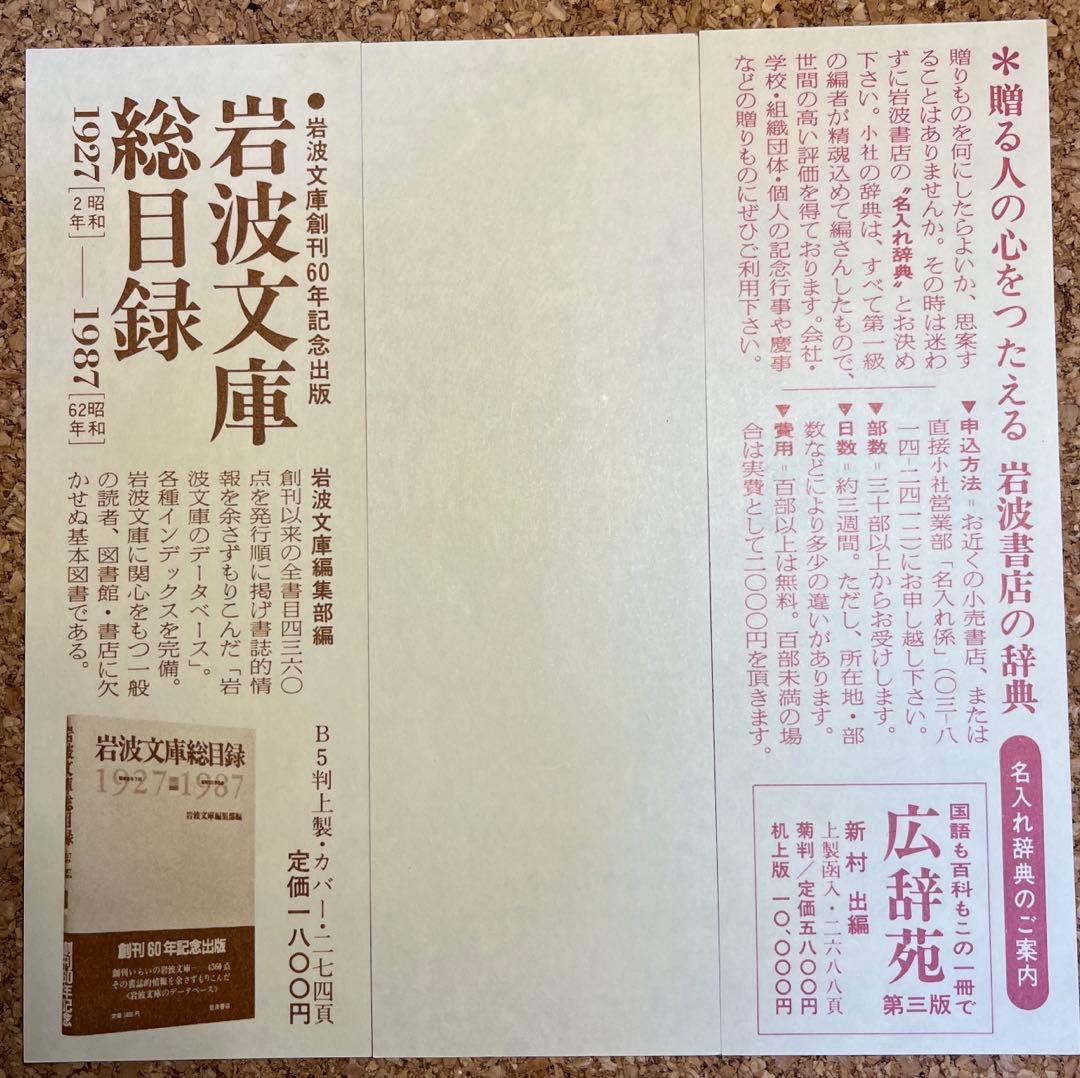 ＊贈る人の心をつたえる 岩波書店の辞典
名入れ辞典のご案内
贈りものを何にしたらよいか、思案す
ることはありませんか。その時は迷わ
ずに岩波書店の〝名入れ辞典〟とお決め
下さい。小社の辞典は、すべて第一級
の編者が精魂込めて編さんしたもので、
世間の高い評価を得ております。会社・
学校・組織団体・個人の記念行事や慶事
などの贈りものにぜひご利用下さい。
▼申込方法＝お近くの小売書店、または
直接小社営業部「名入れ係」（〇三-八
一四-二四一一）にお申し越し下さい。
▼部数＝三十部以上からお受けします。
▼日数＝約三週間。ただし、所在地・部
数などにより多少の違いがあります。
▼費用＝百部以上は無料。百部未満の場
合は実費として二〇〇〇円を頂きます。
国語も百科もこの一冊で
広辞苑 第三版
新村 出編
上製函入・二六八八頁
菊判／定価五八〇〇円
机上版 一〇、〇〇〇円
●岩波文庫創刊60年記念出版
岩波文庫
総目録
1927[昭和2年]——1987[昭和62年]
岩波文庫編集部編
創刊以来の全書目四三六〇
点を発行順に掲げ書誌的情
報を余さずもりこんだ「岩
波文庫のデータベース」。
各種インデックスを完備。
岩波文庫に関心をもつ一般
の読者、図書館・書店に欠
かせぬ基本図書である。
B5判上製・カバー・二七四頁
定価一八〇〇円
岩波文庫総目録
1927-1987
岩波文庫編集部編
創刊60年記念出版
創刊いらいの岩波文庫— 4360点
その書誌的情報を余さずもりこんだ
〈岩波文庫のデータベース〉
定価1800円
岩波書店